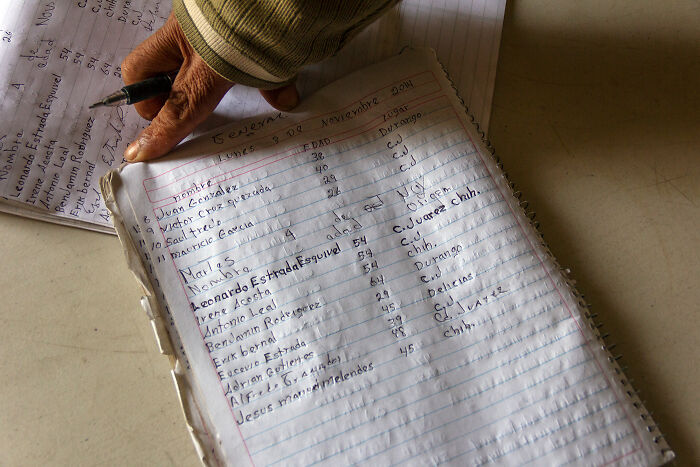 de Nov
Nombre
edad
Leonardo Estrada Esquivel 54
Irene Acosta 54
Antonio Leal 54
Benjamin Rodriguez 64
Erik bernal
General
Lunes 3 de Noviembre 2014
nombre EDAD Lugar
8 Juan Gonzalez 38 Durango
9 Victor Cruz quezada 40 C.J
10 Saul tredo 29 C.J
11 mauricio Garcia 26
Martes 4 de
Nombre edad
Leonardo Estrada Esquivel 54 C. Juarez chih.
Irene Acosta 54 C.J
Antonio Leal 54 chih.
Benjamin Rodriguez 64 Durango
Erik bernal 29 C.J
Eucevio Estrada 45 Delicias
Adrian Gutierres 39 C.J
Alfredo 48 Cd. Juarez
Jesus manuel melendes 45 chih.